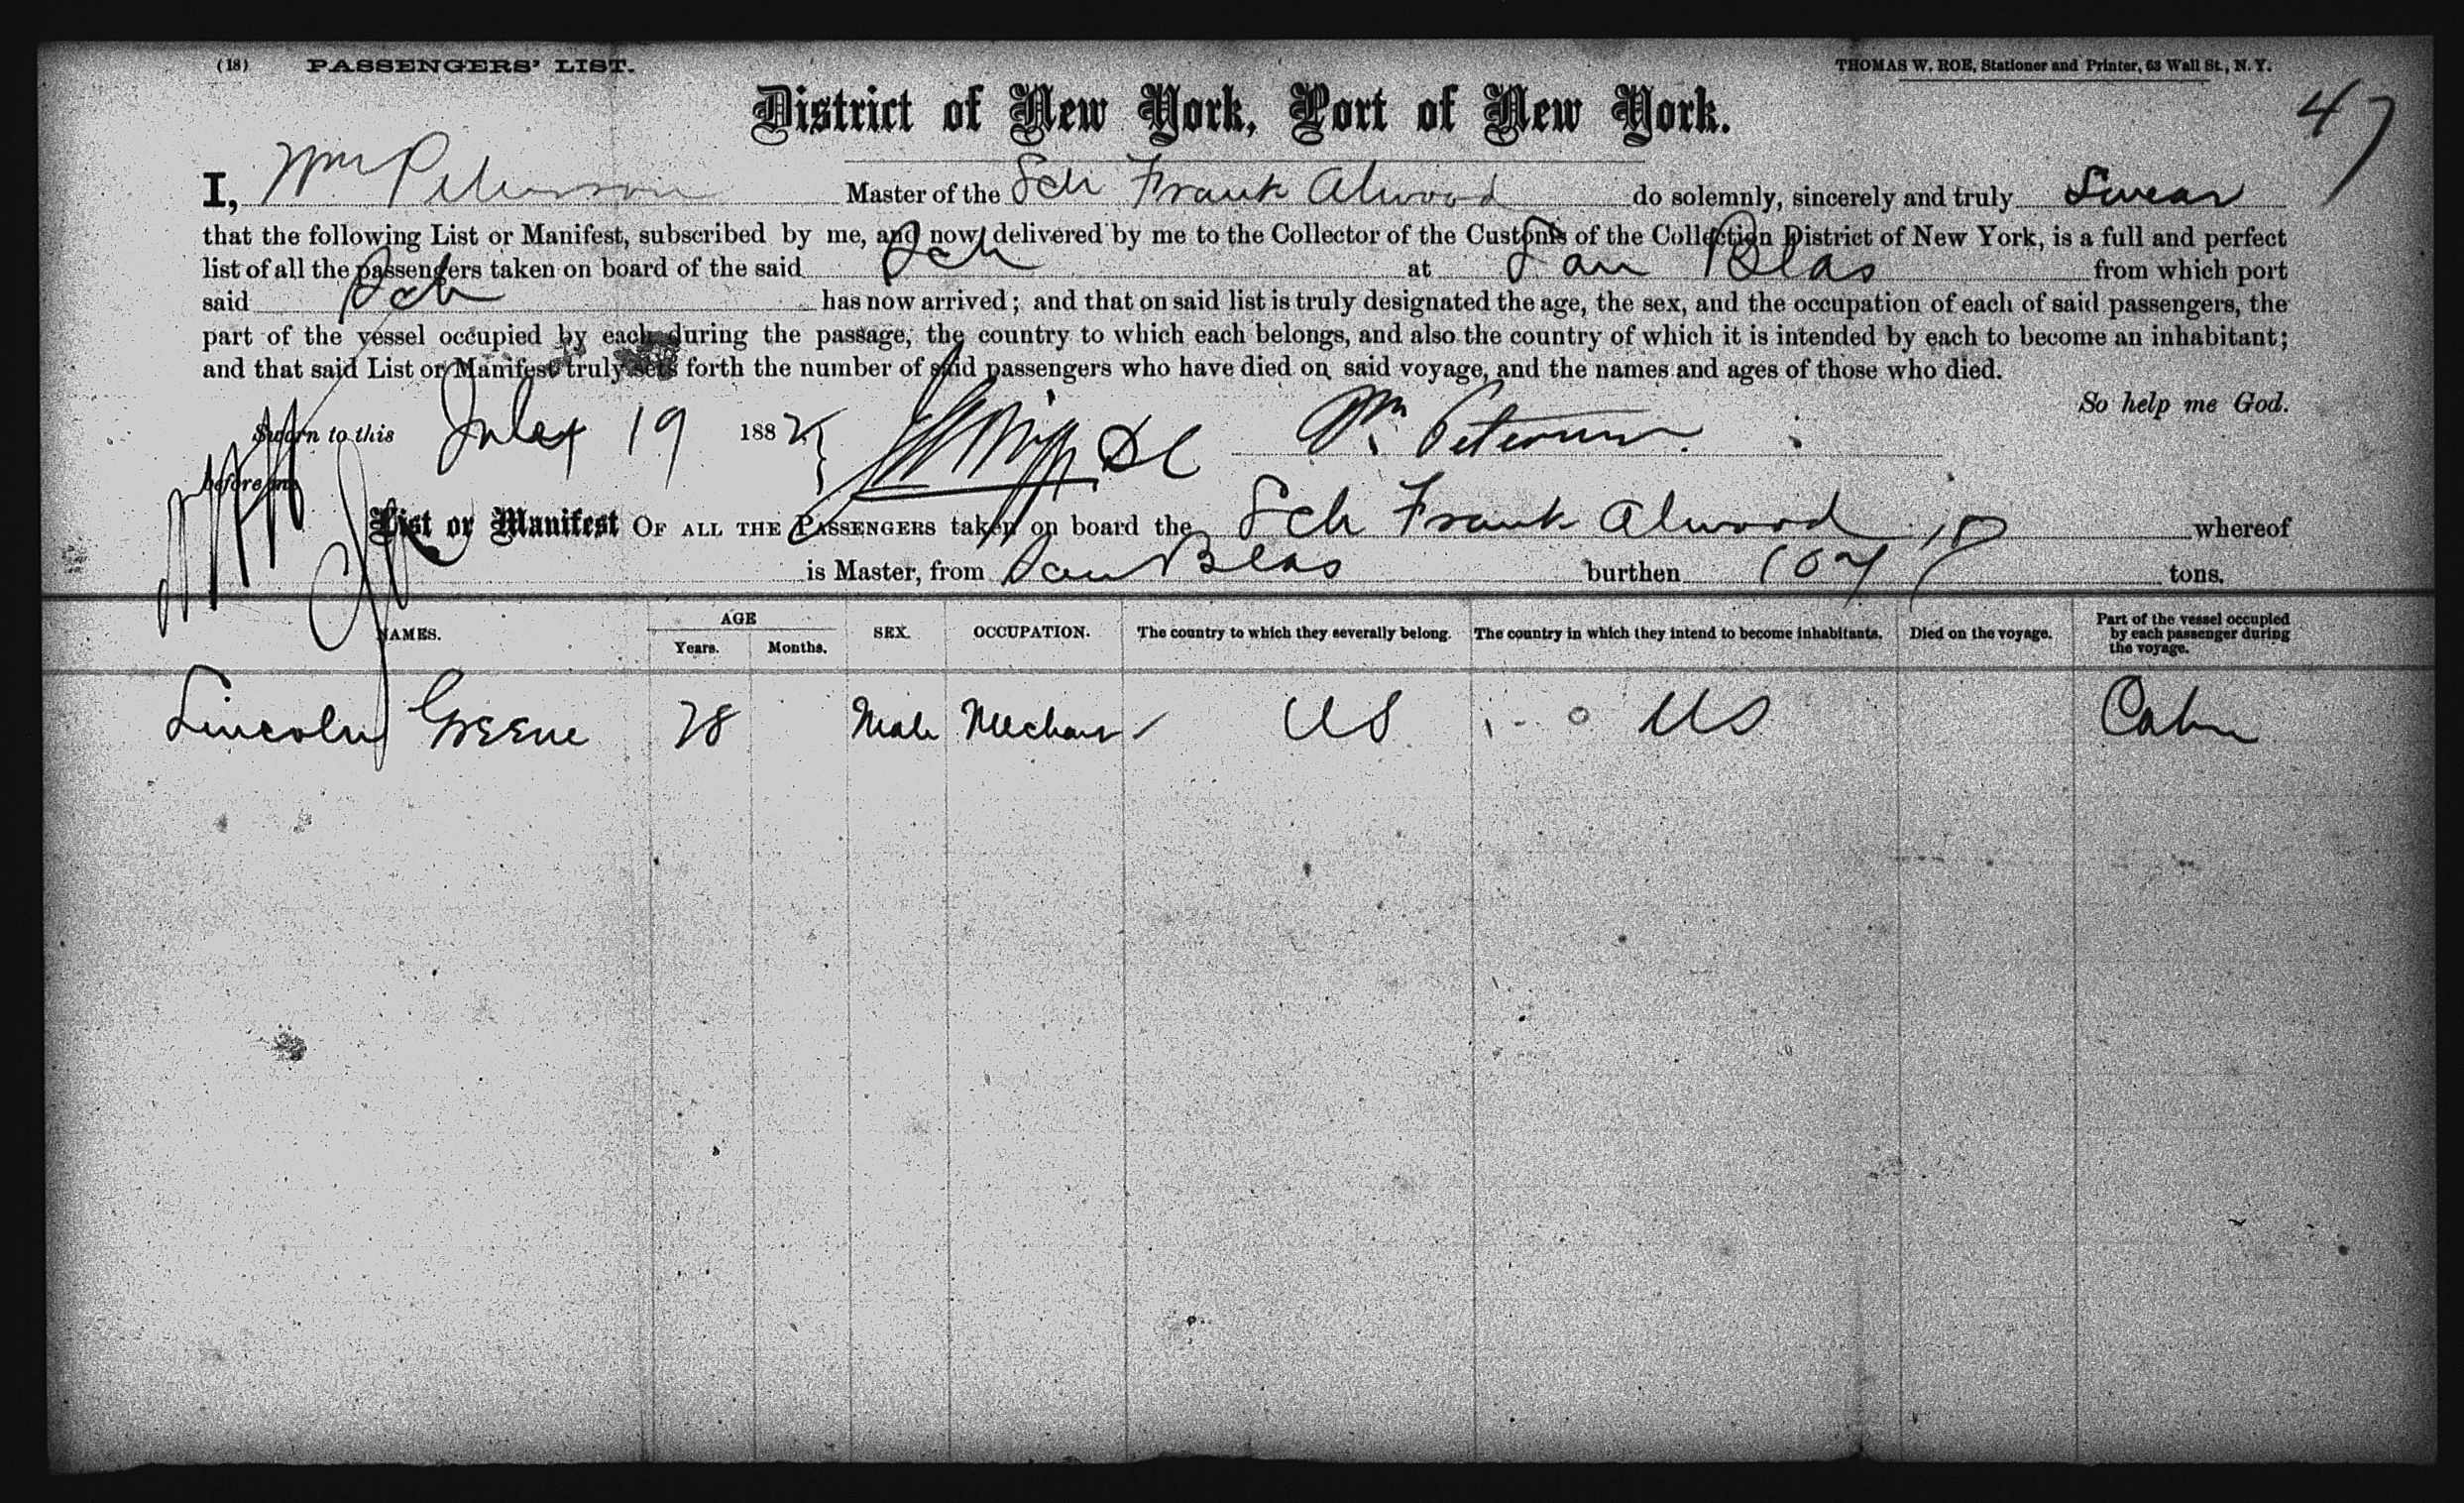 (18) PASSENGERS' LIST.
THOMAS W. ROE, Stationer and Printer, 63 Wall St., N.Y.
47
District of New York, Port of New York.
I, Wm Peterson Master of the Sch Frank Alwood do solemnly, sincerely and truly Swear
that the following List or Manifest, subscribed by me, and now delivered by me to the Collector of the Customs of the Collection District of New York, is a full and perfect
list of all the passengers taken on board of the said Sch at San Blas from which port
said Sch has now arrived; and that on said list is truly designated the age, the sex, and the occupation of each of said passengers, the
part of the vessel occupied by each during the passage, the country to which each belongs, and also the country of which it is intended by each to become an inhabitant;
and that said List or Manifest truly sets forth the number of said passengers who have died on said voyage, and the names and ages of those who died.
So help me God.
Sworn to this July 19 1882 Wm Peterson
before me
List or Manifest OF ALL THE PASSENGERS taken on board the Sch Frank Alwood whereof
is Master, from San Blas burthen 107 tons.
NAMES. AGE Years. Months. SEX. OCCUPATION. The country to which they severally belong. The country in which they intend to become inhabitants. Died on the voyage. Part of the vessel occupied by each passenger during the voyage.
Lincoln Greene 28 Male US US Cabin